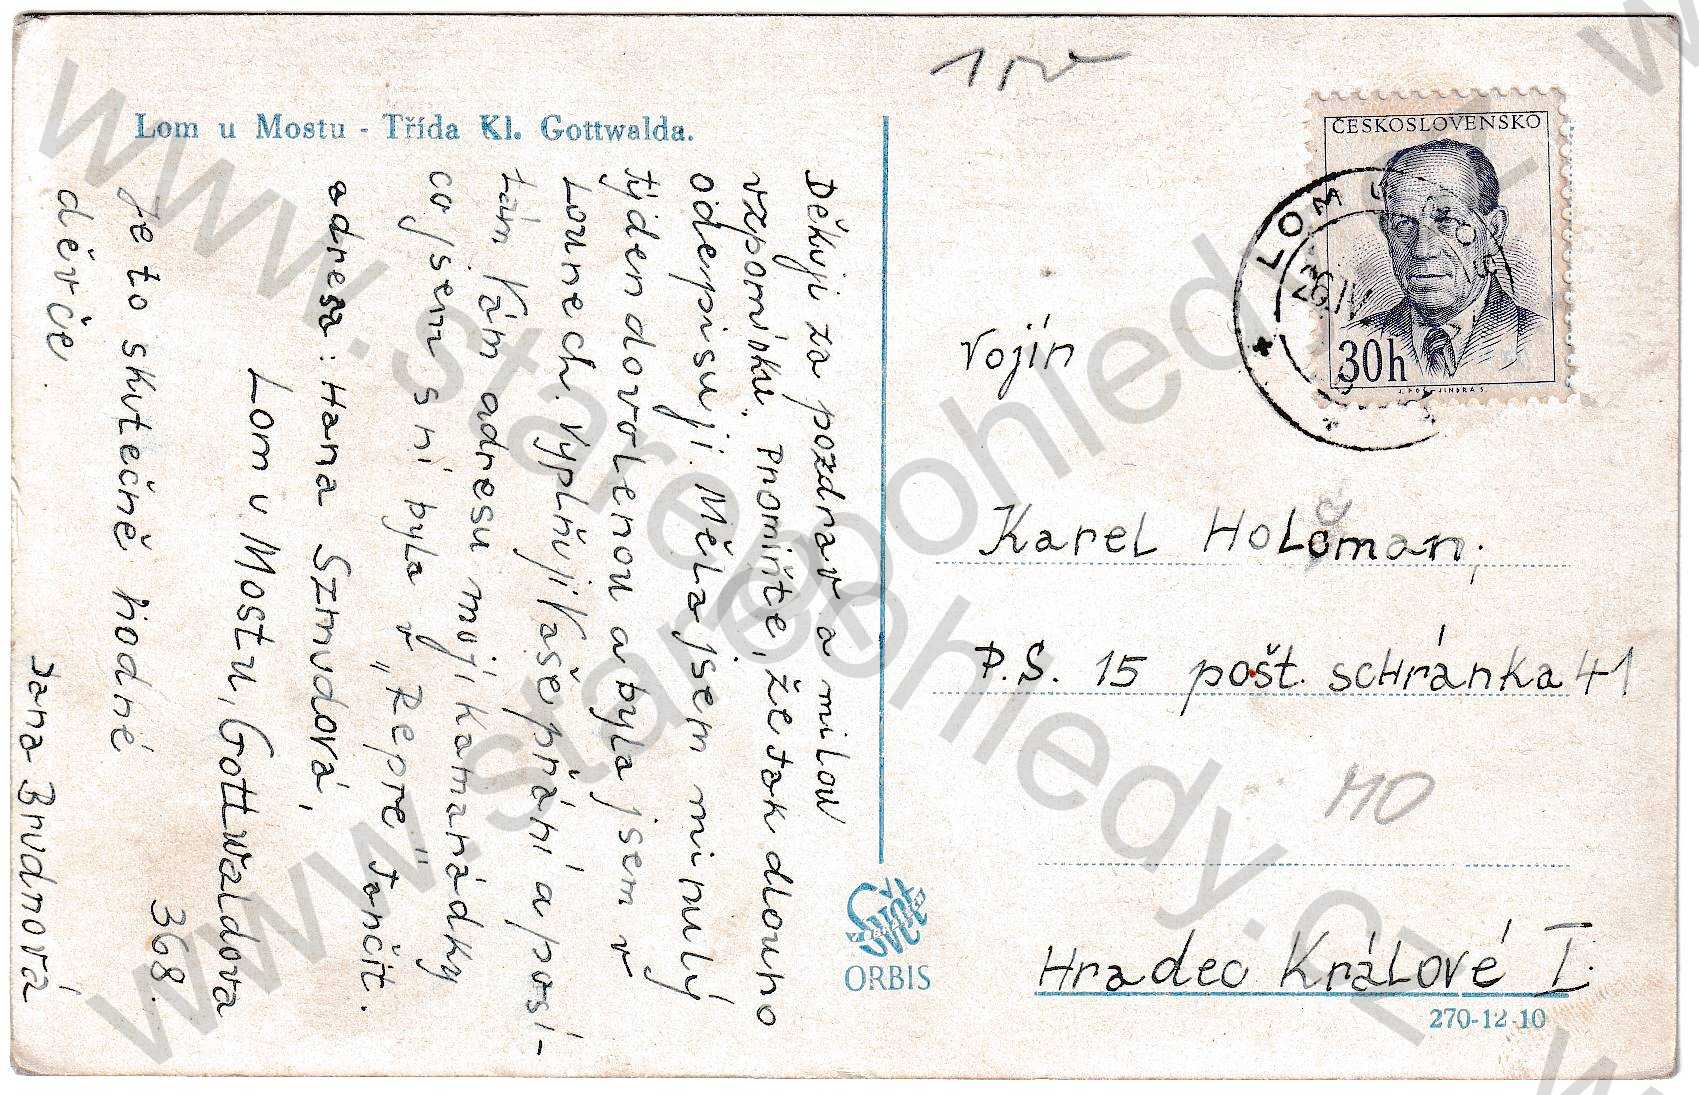 Lom u Mostu - Třída Kl. Gottwalda.
Děkuji za pozdrav a milou
vzpomínku. Promiňte, že tak dlouho
odepisuji. Měla jsem minulý
týden dovolenou a byla jsem v
Lounech. Vyplňuji Vaše přání a posí-
lám Vám adresu mojí kamarádky
co jsem s ní byla v „Repre" tančit.
adresa: Hana Szmudová,
Lom u Mostu, Gottwaldova
368.
Je to skutečně hodné
děvče.
Jana Brudnová
ČESKOSLOVENSKO
30h
LOM U MOSTU
Vojín
Karel Holoman,
P.S. 15 pošt. schránka 41
MO
Hradec Králové I.
ORBIS
270-12-10
www.starepohledy.cz
www.starepohledy.cz